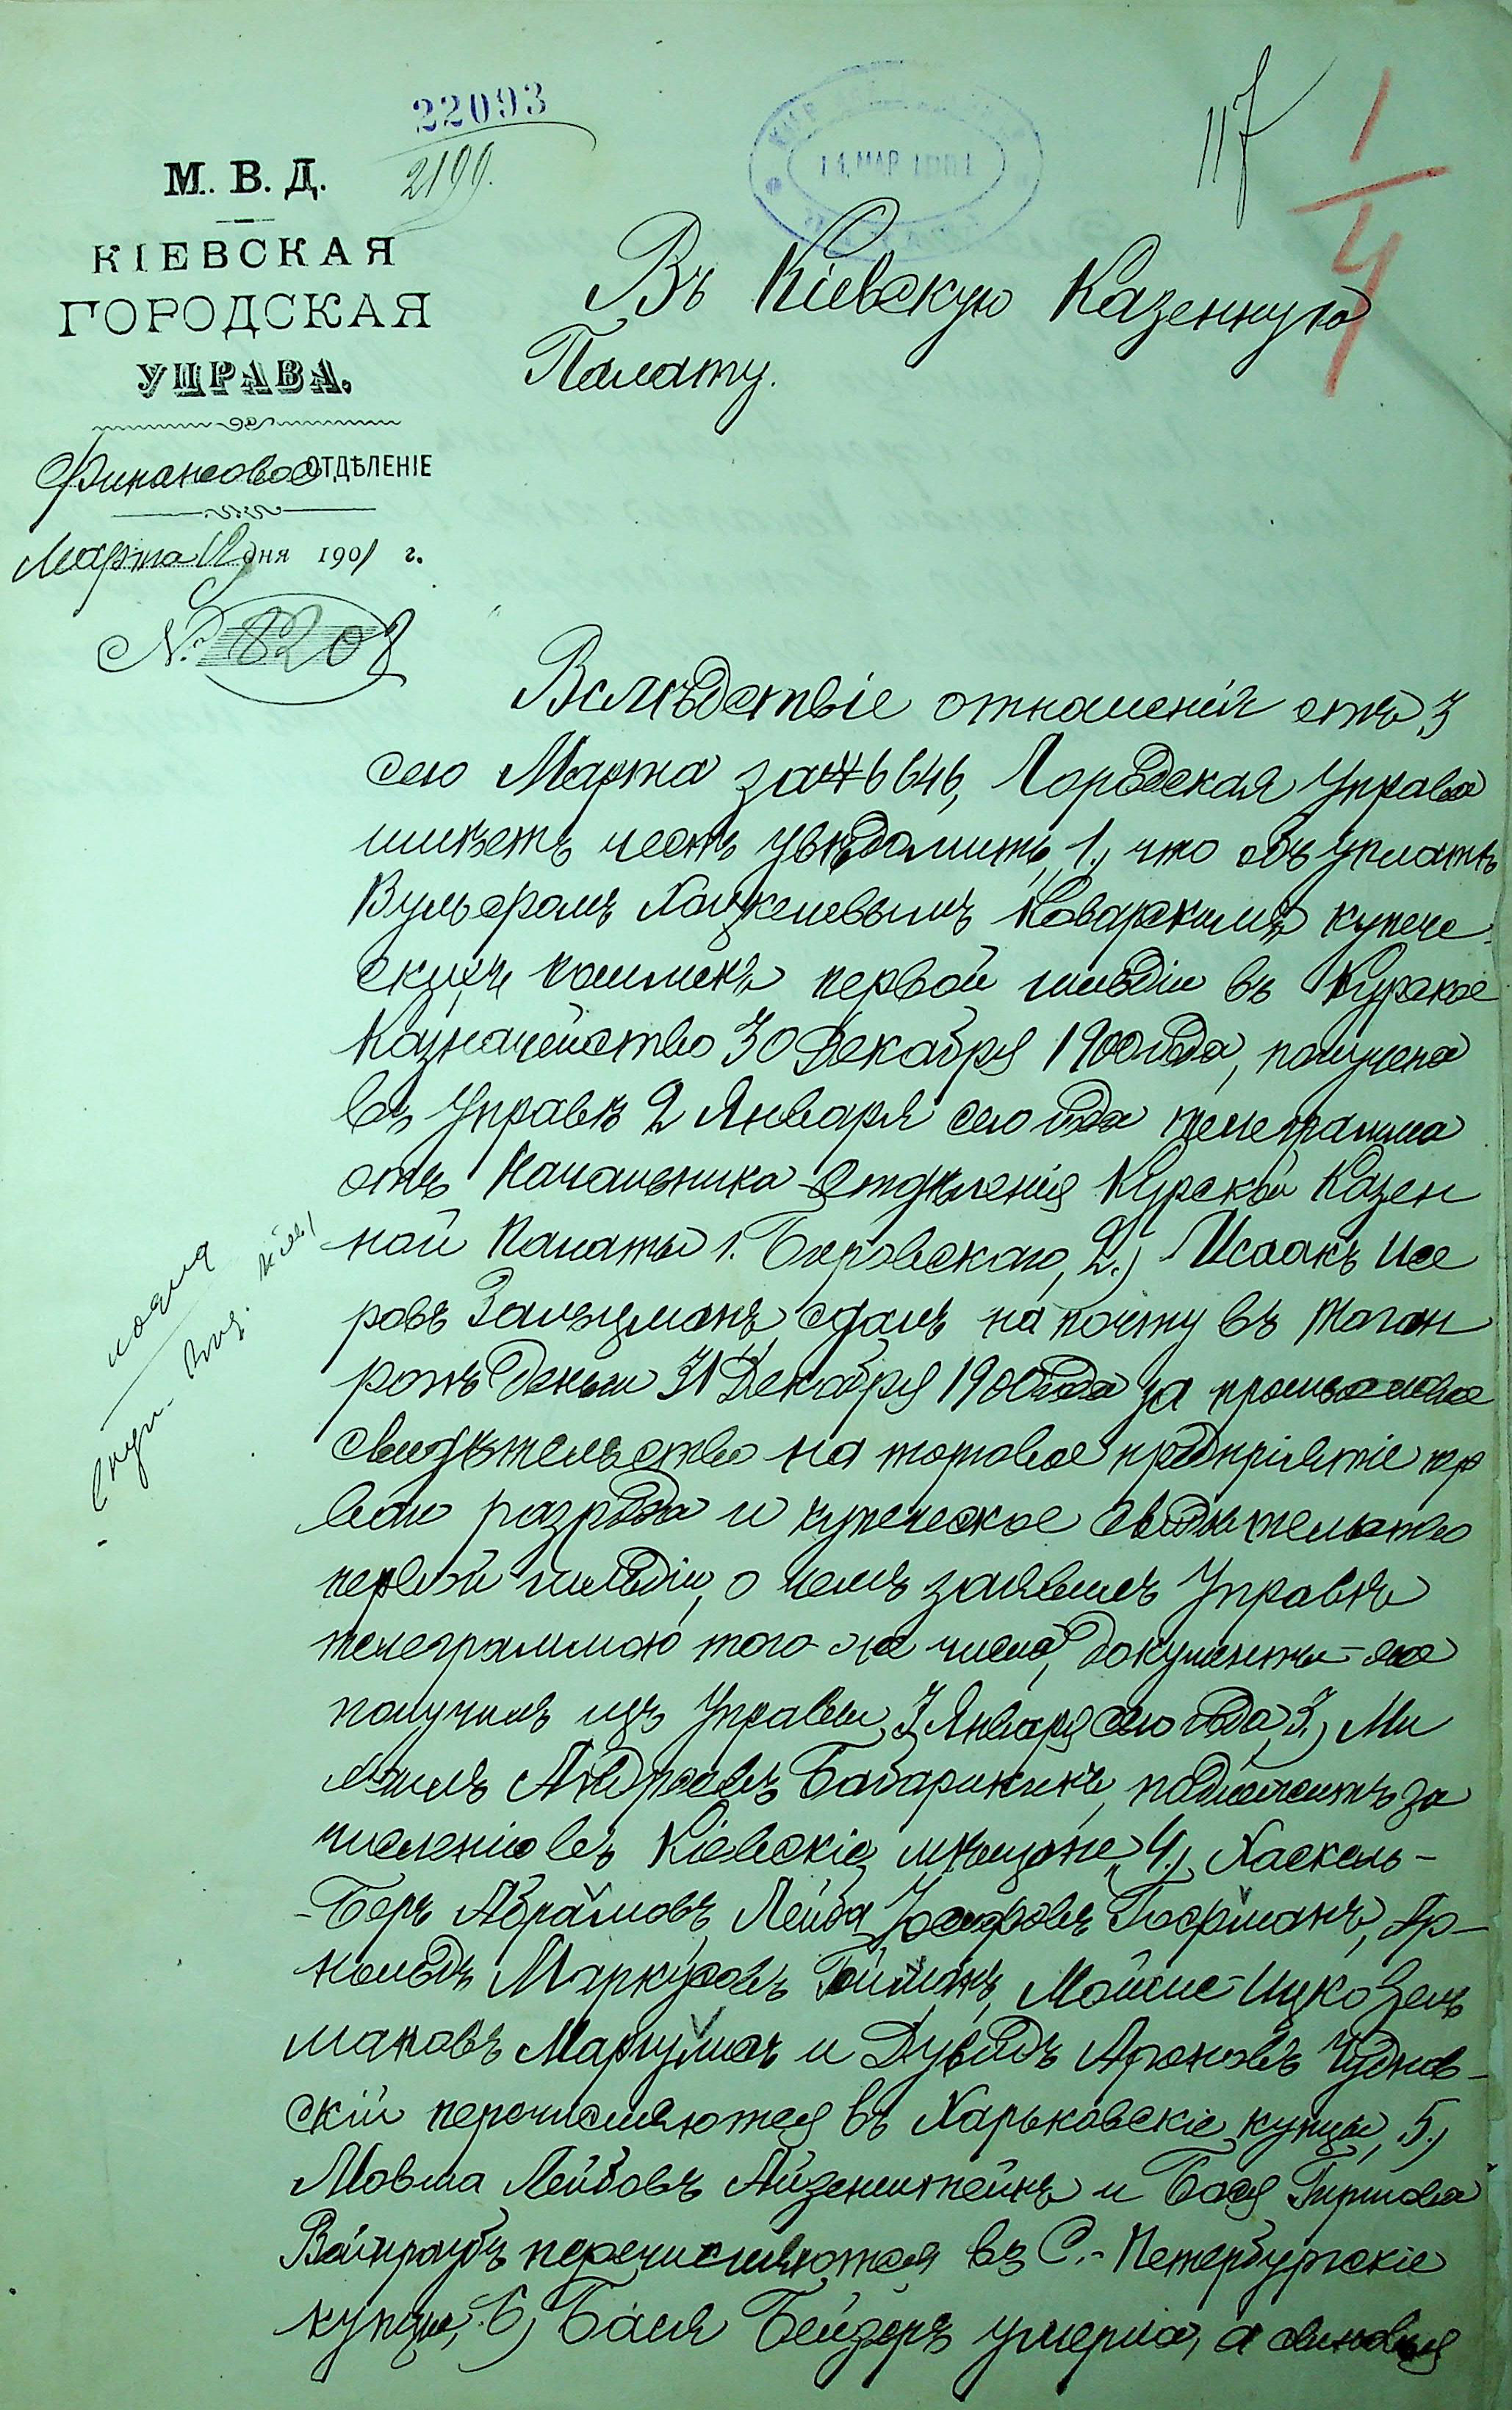 22093
2199.
14 МАР 1901
117
1/4
М. В. Д.
КІЕВСКАЯ
ГОРОДСКАЯ
УПРАВА.
Финансовое ОТДѢЛЕНІЕ
Марта 12 дня 1901 г.
№ 8208
Въ Кіевскую Казенную
Палату.
Вслѣдствіе отношенія отъ 3
сего Марта за № 6646, Городская Управа
имѣетъ честь увѣдомить, 1., что объ уплатѣ
Вульфомъ Хацкелевымъ Коварскимъ купече
скихъ пошлинъ первой гильдіи въ Курское
Казначейство 30 Декабря 1900 года, получена
въ Управѣ 2 Января сего года телеграмма
отъ Начальника Отдѣленія Курской Казен
ной Палаты г. Боровскаго, 2.) Исаакъ Иса
ровъ Зальцманъ сдалъ на почту въ Таган
рогѣ деньги 31 Декабря 1900 года за промысловое
свидѣтельство на торговое предпріятіе пер
ваго разряда и купеческое свидѣтельство
первой гильдіи, о чемъ заявилъ Управѣ
телеграммою того-же числа, документы-же
получилъ изъ Управы 3 Января сего года, 3.) Ми
хаилъ Андреевъ Бабарикинъ, подлежитъ за
численію въ Кіевскіе мѣщане, 4.) Хаскель-
-Беръ Абрамовъ, Лейба Іосифовъ Гофманъ, Ар-
нольдъ Маркусовъ, Мошко-Ицко Зель
мановъ Маргулисъ и Дувидъ Ароновъ Чуднов-
скій перечисляются въ Харьковскіе купцы, 5.)
Мовша Лейбовъ Айзенштейнъ и Бася Гиршова
Вайнраубъ перечисляются въ С.-Петербургскіе
купцы, 6) Бася Бейзеръ умерла, а сыновья